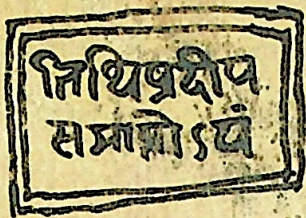 तिथिप्रदीप
समाप्तोऽयं